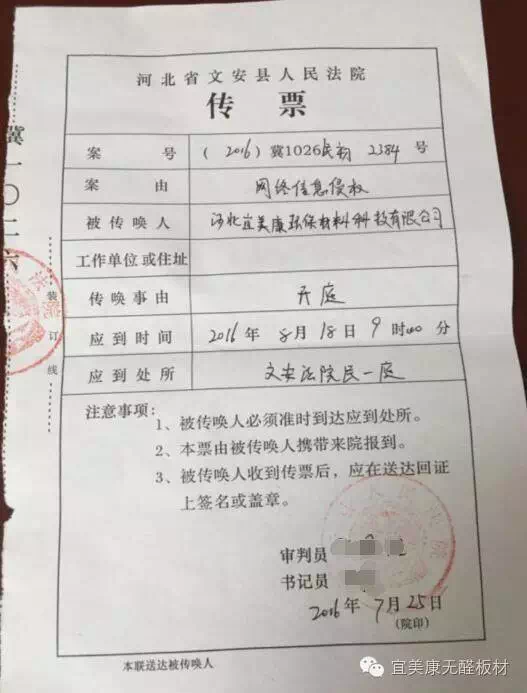 河北省文安县人民法院
传票
案号 （2016）冀1026民初 2384 号
案由 网络信息侵权
被传唤人 河北宜美康环保材料科技有限公司
工作单位或住址
传唤事由 开庭
应到时间 2016年 8月 18日 9时00分
应到处所 文安法院民一庭
注意事项：
1、被传唤人必须准时到达应到处所。
2、本票由被传唤人携带来院报到。
3、被传唤人收到传票后，应在送达回证
上签名或盖章。
审判员
书记员
2016年 7月 25日
（院印）
本联送达被传唤人
冀一〇二六
装订线
宜美康无醛板材